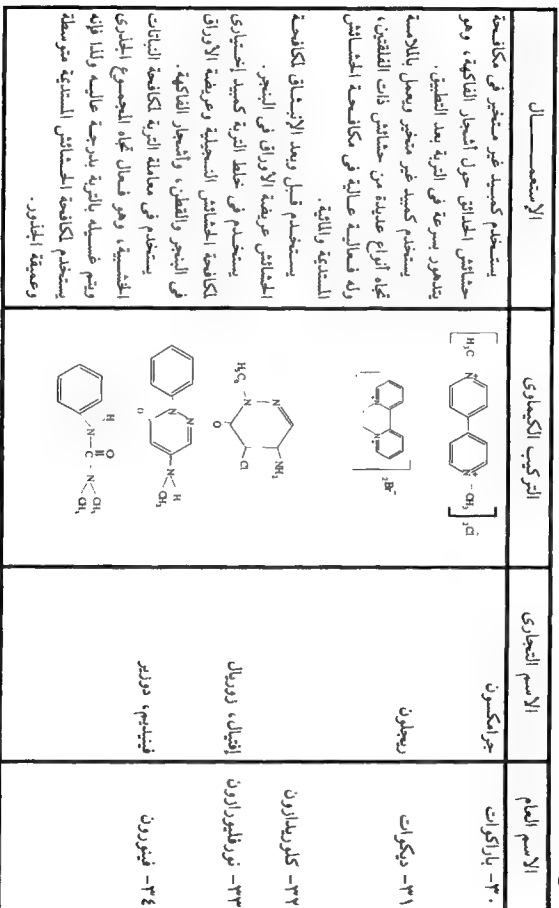 الاسم العام
الاسم التجارى
التركيب الكيماوى
الإستعمـــــال
٣٠- باراكوات
جرامكسون
[H₃C N⁺ N⁺ - CH₃] 2Cl⁻
يستخدم كمبيد غير متخير فى مكافحة
حشائش الحدائق حول أشجار الفاكهة، وهو
يتدهور بسرعة فى التربة بعد التطبيق.
٣١- ديكوات
ريجلون
N⁺ N⁺ ] 2Br⁻
يستخدم كمبيد غير متخير ويعمل بالملامسة
تجاه أنواع عديدة من حشائش ذات الفلقتين،
وله فعالية عالية فى مكافحة الحشائش
المستديمة والمائية.
٣٢- كلوريدازون
H₅C₆ N N O Cl NH₂
يستخدم قبل وبعد الإنبثاق لمكافحة
الحشائش عريضة الأوراق فى البنجر.
٣٣- نورفليورازون
إفتيال، زوريال
N N O N H CH₃
يستخدم فى خلط التربة كمبيد إختيارى
لمكافحة الحشائش النجيلية وعريضة الأوراق
فى البنجر والقطن، وأشجار الفاكهة.
٣٤- فينورون
فينيديم، دوزير
H N C O N CH₃ CH₃
يستخدم فى معاملة التربة لمكافحة النباتات
الخشبية، وهو فعال تجاه المجموع الجذرى
ويتم غسيله بالتربة بدرجة عالية ولذا فإنه
يستخدم لمكافحة الحشائش المستديمة متوسطة
وعميقة الجذور.